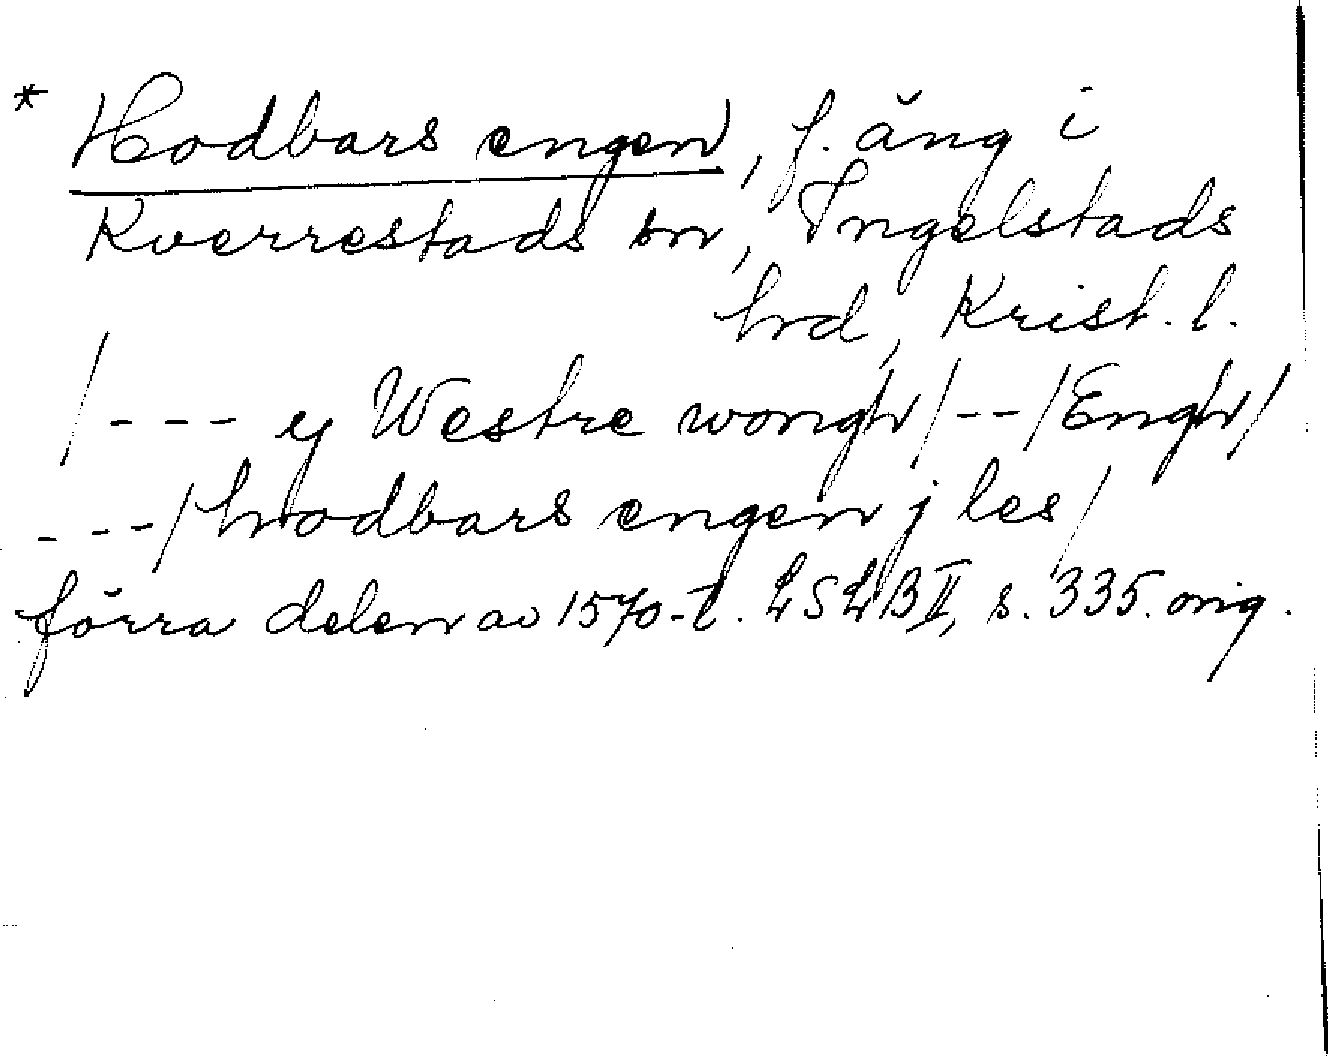 * Hodbars engen, f. äng i
Kverrestads sn, Ingelstads
hrd, Krist. l.
/--- ey Westre wongh/--/Engh/
---/hodbars engen j les/
förra delen av 1570-t. LSLB II, s. 335. orig.